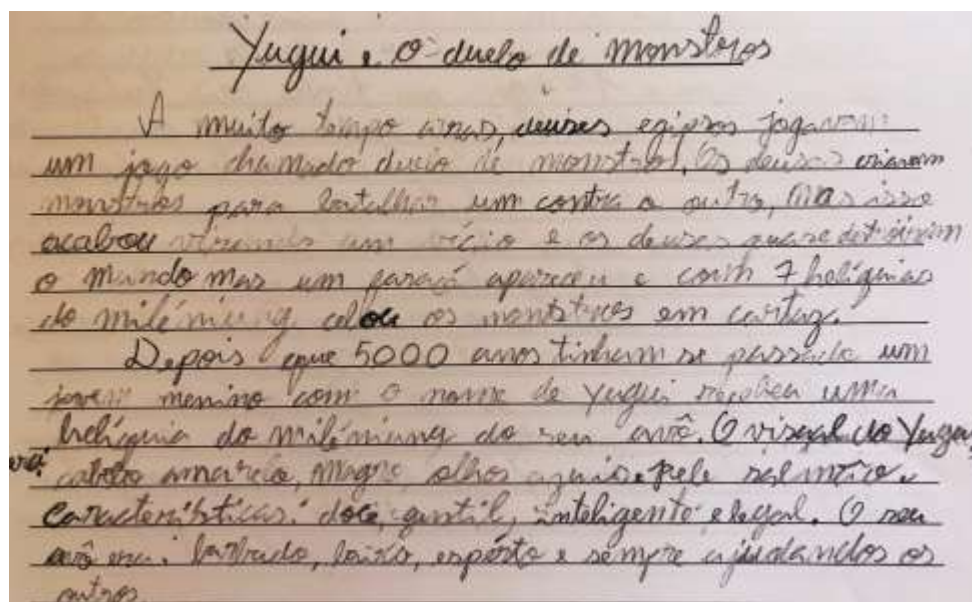 Yugui e o duelo de monstros
A muito tempo atras, deuses egipsos jogavam
um jogo chamado duelo de monstros. Os deuses criavam
monstros para batalhar um contra o outro, mas isso
acabou virando um vício e os deuses quase detroiram
o mundo mas um faraó apareceu e com 7 helíquias
do milêniung celou os monstros em cartaz.
Depois que 5000 anos tinham se passado um
jovem menino com o nome de Yugui recebeu uma
helíquia do milêniung do seu avô. O visual do Yugui
cabelo amarelo, magro, olhos azuis e pele
Caracteristicas: doce, gentil, inteligente e legal. O seu
avô era: barbudo, baixo, espérto e sempre ajudandos os
outros.